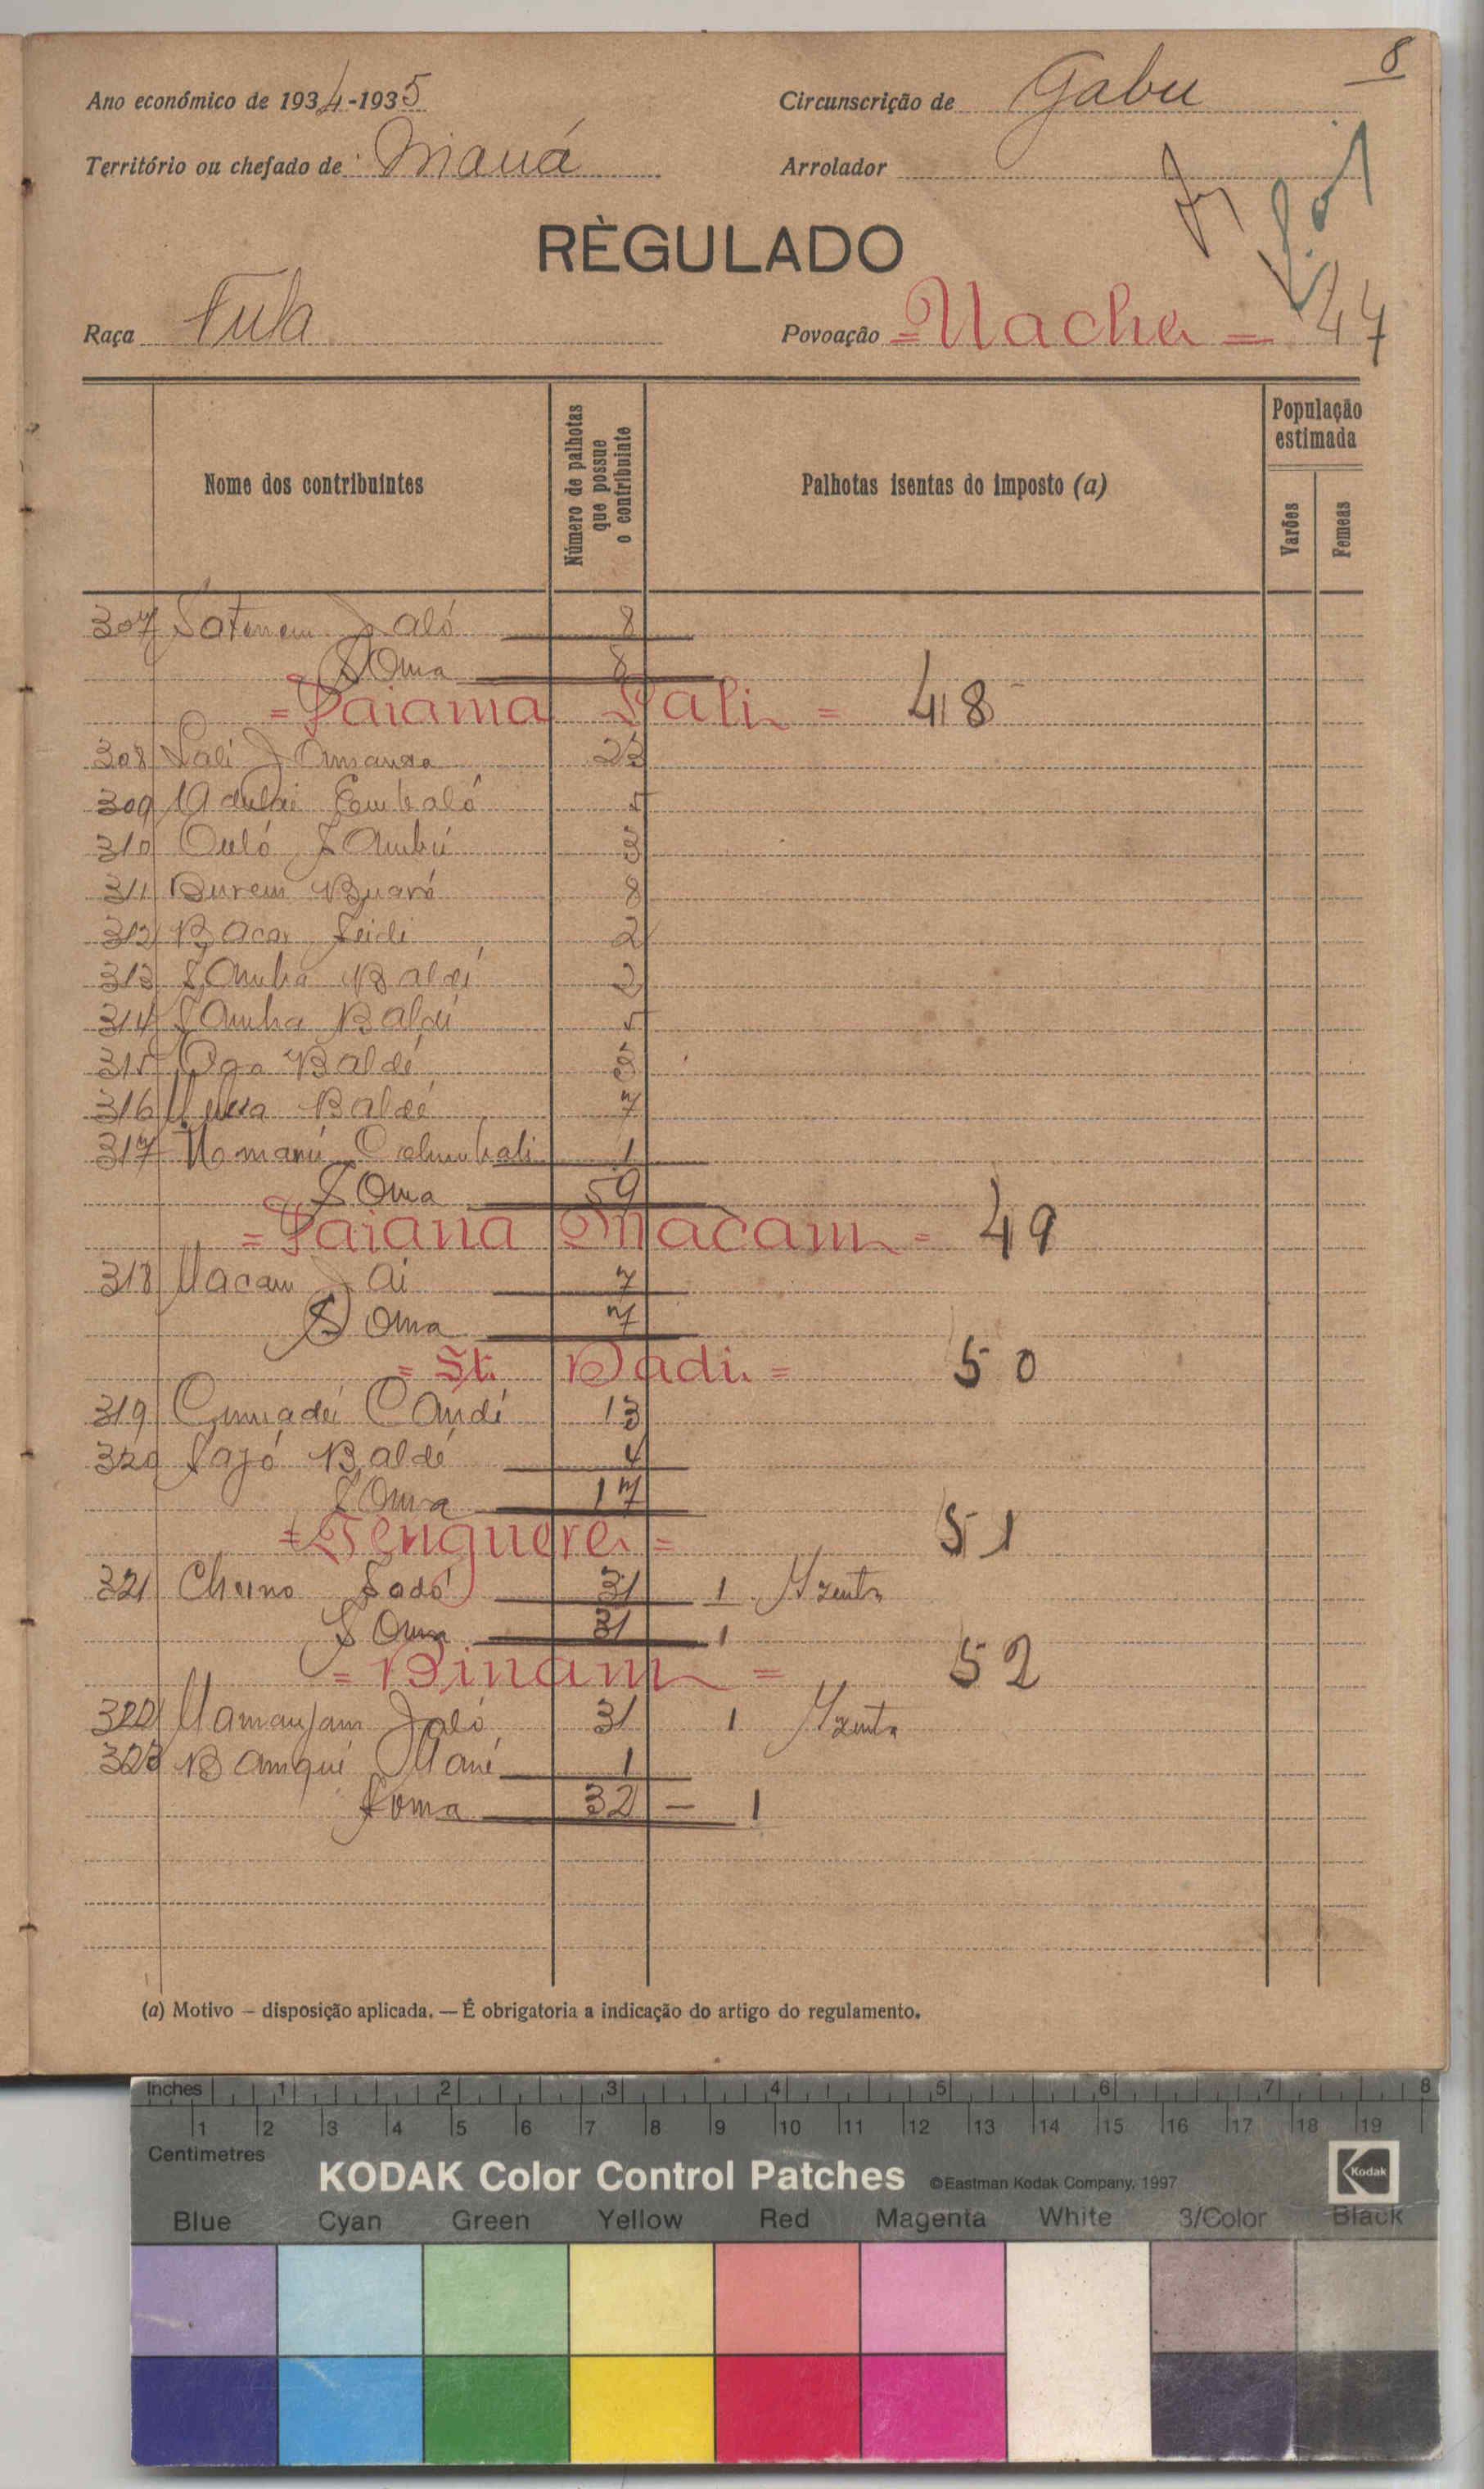 8
Ano económico de 1934-1935
Circunscrição de Gabu
Território ou chefado de Maná
Arrolador
RÈGULADO
Raça Fula
Povoação = Uacha = 47
Nome dos contribuintes
Número de palhotas que possue o contribuinte
Palhotas isentas do imposto (a)
População estimada
Varões
Femeas
307 Jaló 8
Soma 8
= Saiama Sali = 48
308 Sali 23
309 Adulai Embaló 5
310 Ouló Sambú 3
311 Burem Buaró 8
312 Bacar Seidi 2
313 Samba Baldé 2
314 Samba Baldé 5
315 Baldé 3
316 Baldé 7
317 1
Soma 59
= Saiana Macam = 49
318 Macam Jai 7
Soma 7
= St. Dadi = 50
319 Candé 13
320 Sajó Baldé 4
Soma 17
= Tenguere = 51
321 Cherno Sadó 31 1 Izenta
Soma 31 1
= Binam = 52
322 Jaló 31 1 Izenta
323 Banqui Mané 1
Soma 32 — 1
(a) Motivo — disposição aplicada. — É obrigatoria a indicação do artigo do regulamento.
Inches 1 2 3 4 5 6 7 8
1 2 3 4 5 6 7 8 9 10 11 12 13 14 15 16 17 18 19
Centimetres
KODAK Color Control Patches ©Eastman Kodak Company, 1997 Kodak
Blue Cyan Green Yellow Red Magenta White 3/Color Black